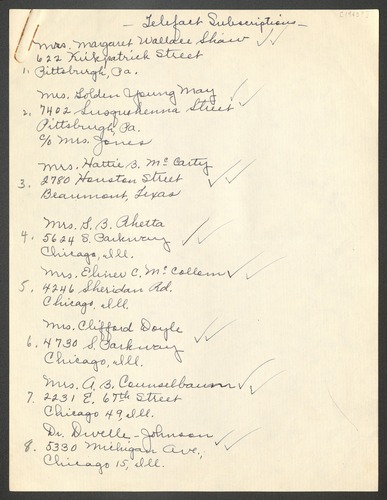 - Telefact Subscriptions -
Mrs. Margaret Wallace Shaw
622 Kirkpatrick Street
1. Pittsburgh, Pa.
Mrs. Golden Young May
2. 7402 Susquehanna Street
Pittsburgh, Pa.
c/o Mrs. Jones
Mrs. Hattie B. McCarty
3. 2780 Houston Street
Beaumont, Texas
Mrs. S. B. Rhetta
4. 5624 S. Parkway
Chicago, Ill.
Mrs. Elmer C. McCollom
5. 4246 Sheridan Rd.
Chicago, Ill.
Mrs. Clifford Doyle
6. 4730 S. Parkway
Chicago, Ill.
Mrs. A. B. Counselbaum
7. 2231 E. 67th Street
Chicago 49, Ill.
Dr. Divelle - Johnson
8. 5330 Michigan Ave.,
Chicago 15, Ill.